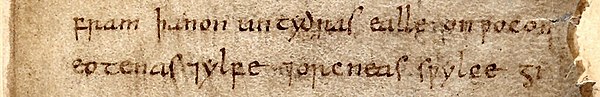 þram þanon untydras ealle onpocon
eotenas ⁊ylfe ⁊orcneas sƿylce gi